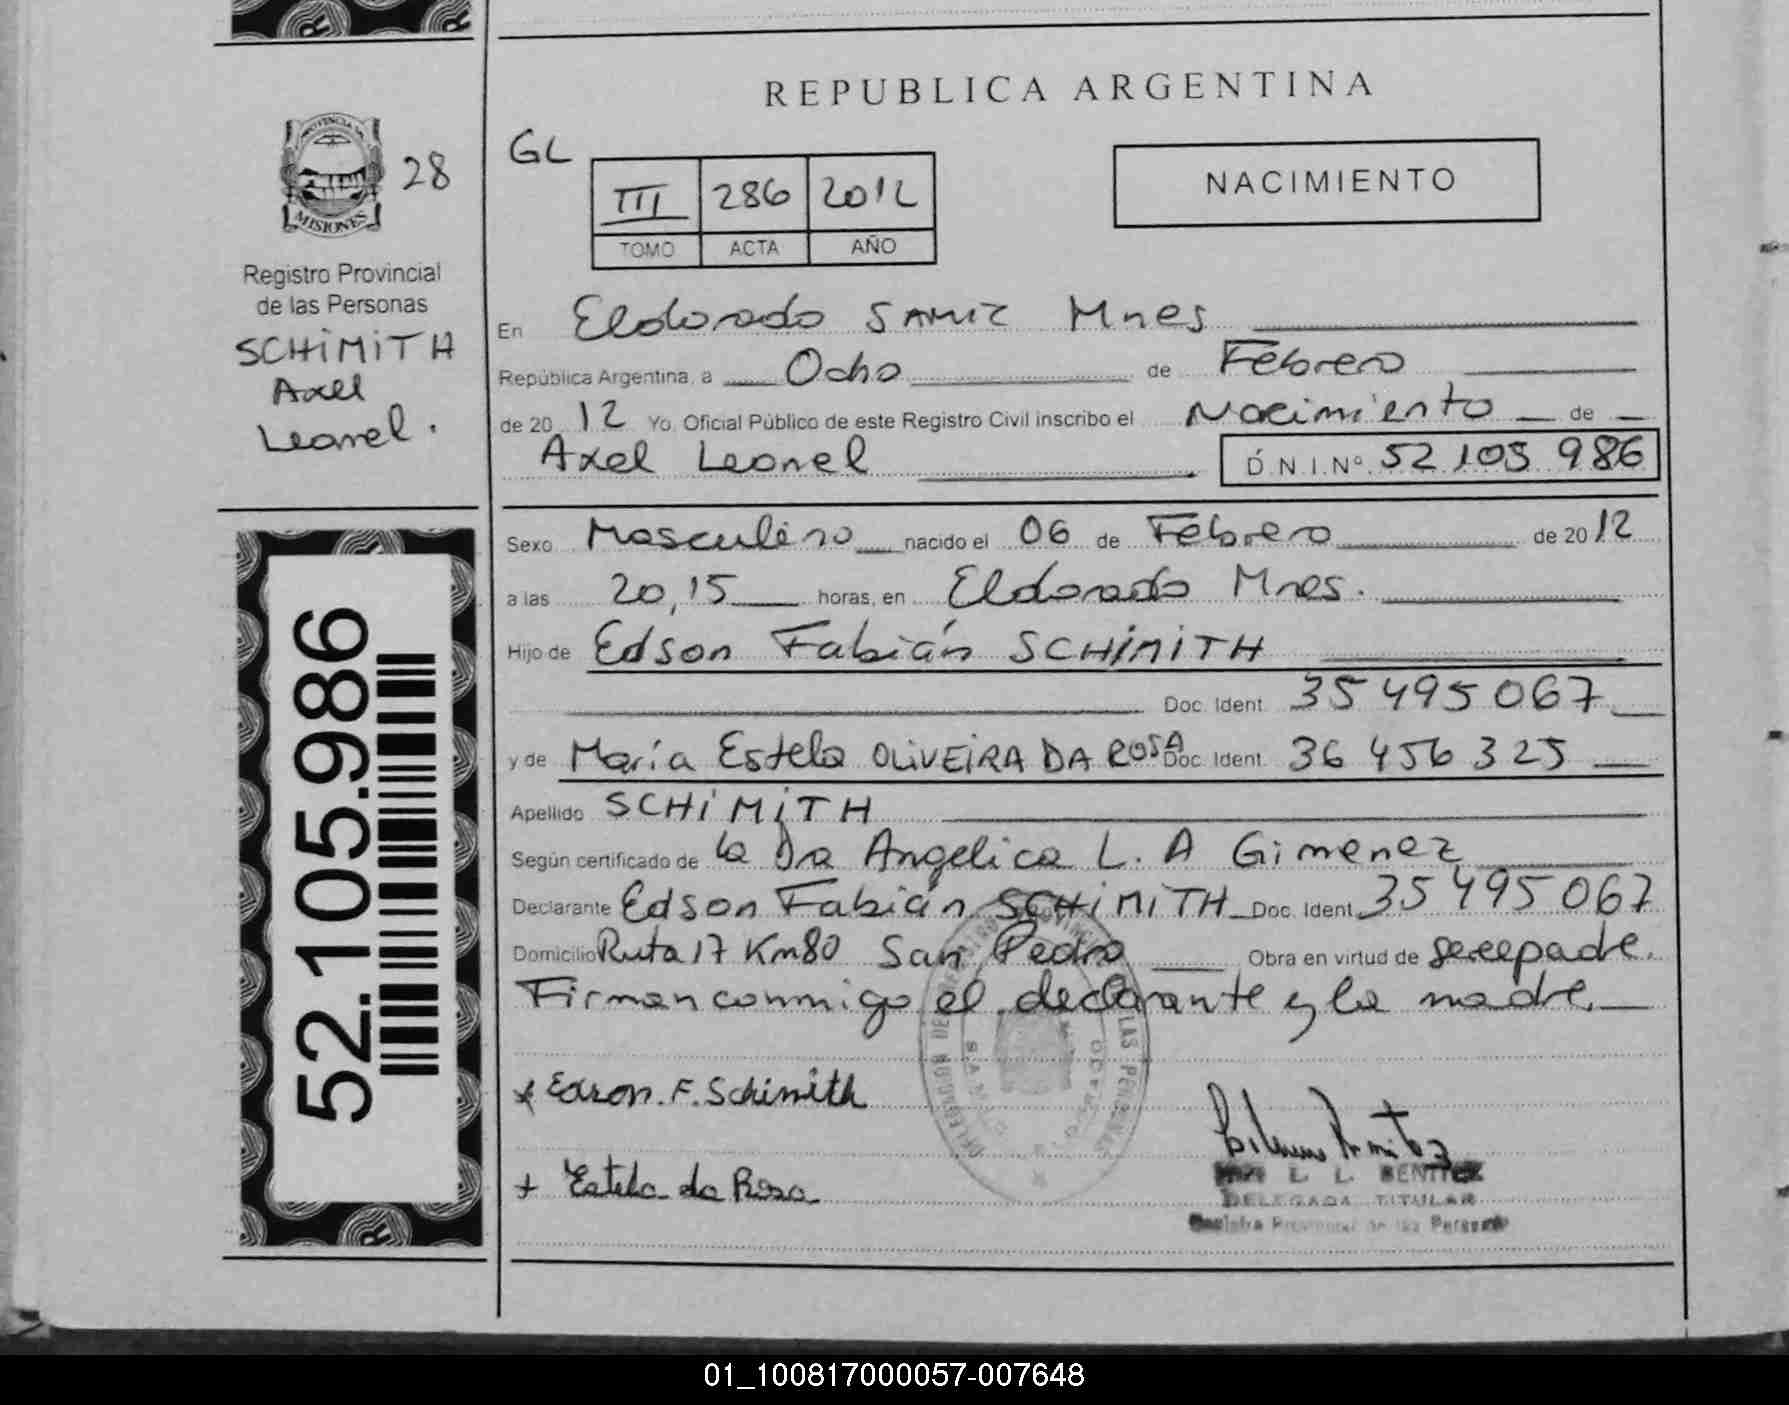 REPUBLICA ARGENTINA
PROVINCIA DE
MISIONES
28
GL
III 286 2012
TOMO ACTA AÑO
NACIMIENTO
Registro Provincial
de las Personas
SCHIMITH
Axel
Leonel.
En Eldorado SAMIC Mnes
República Argentina, a Ocho de Febrero
de 2012 Yo, Oficial Público de este Registro Civil inscribo el Nacimiento de
Axel Leonel D.N.I.Nº 52 105 986
Sexo Masculino nacido el 06 de Febrero de 2012
a las 20,15 horas, en Eldorado Mnes.
Hijo de Edson Fabián SCHIMITH
Doc. Ident. 35 495 067
y de María Estela OLIVEIRA DA ROSA Doc. Ident. 36 456 325
Apellido SCHIMITH
Según certificado de la Dra Angelica L. A Gimenez
Declarante Edson Fabián SCHIMITH Doc. Ident. 35 495 067
Domicilio Ruta 17 Km 80 San Pedro Obra en virtud de ser el padre.
Firman conmigo el declarante y la madre.
Edson. F. Schimith
Estela da Rosa
L. L. BENITEZ
DELEGADA TITULAR
Registro Provincial de las Personas
52.105.986
01_100817000057-007648